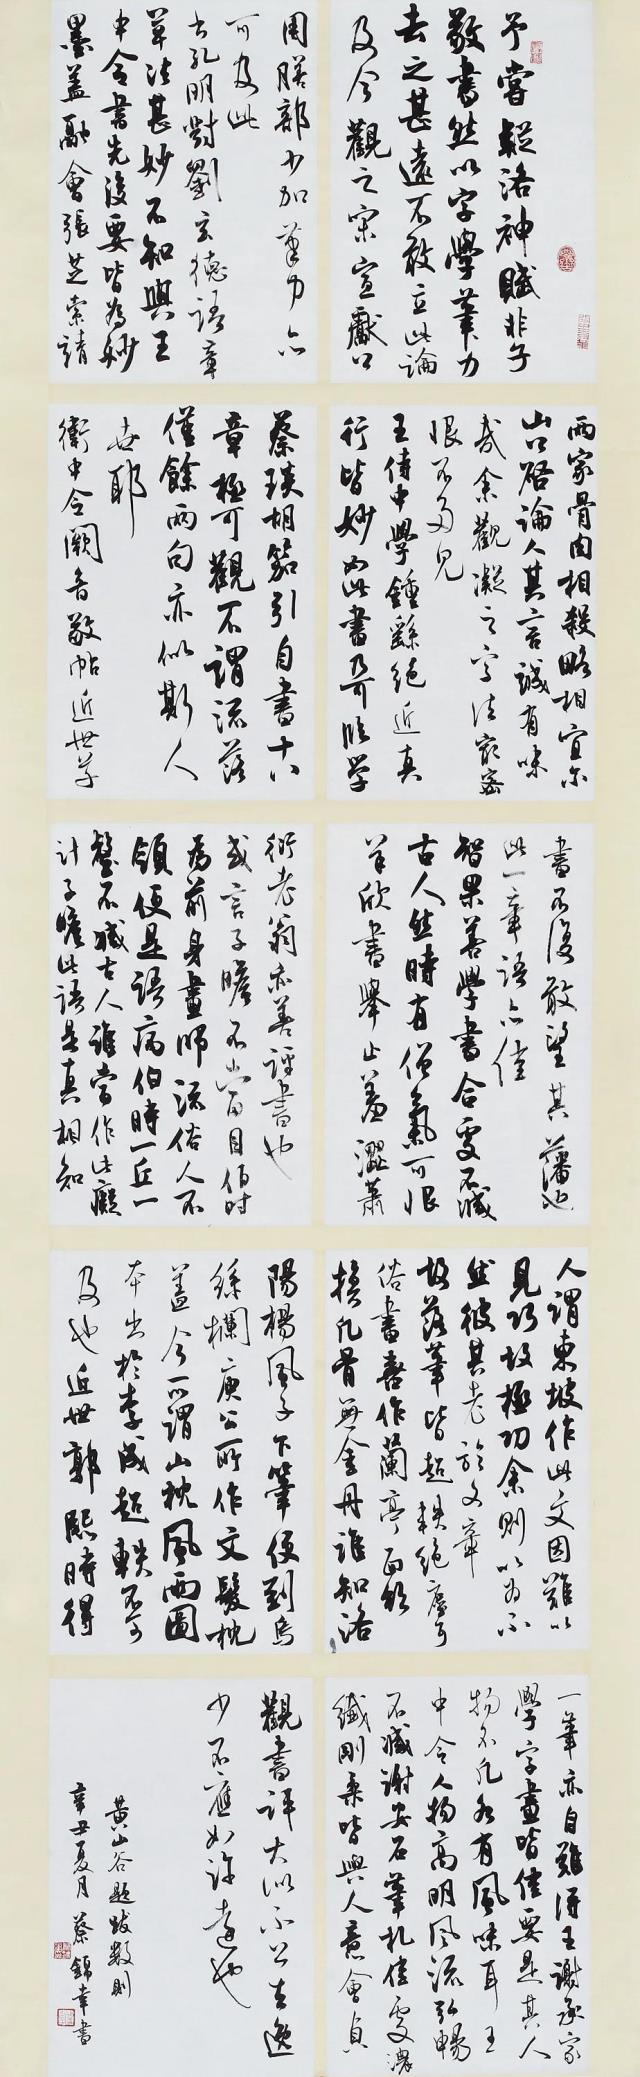 予嘗疑洛神賦非子
敬書然以字學筆力
去之甚遠不敢立此論
及今觀之宋宣獻公
周膳部少加筆力亦
可及此
右孔明對劉玄德語章
草法甚妙不知與王
中令書先後要皆為妙
墨蓋融會張芝索靖
兩家骨肉相殺略相宜爾
山口啓論人其言誠有味
哉余觀凝之字法最密
恨不多見
王侍中學鍾繇絕近真
行皆妙如此書乃可臨學
蔡琰胡笳引自書十八
章極可觀不謂流落
僅餘兩句亦似斯人
世耶
衛中令闕音敬帖近世草
書不復敢望其藩也
此一章語亦佳
智果善學書合處不減
古人然時有僧氣可恨
羊欣書舉止羞澀蕭
衍老翁亦善評書也
或言子瞻不當目伯時
為前身畫師流俗人不
領便是語病伯時一丘一
壑不減古人誰當作此癡
計子瞻此語是真相知
人謂東坡作此文因難以
見巧故極工余則以為不
然彼其老於文章
故落筆皆超軼絕塵耳
俗書喜作蘭亭面欲
換凡骨無金丹誰知洛
陽楊風子下筆便到烏
絲欄庚公所作文髮枕
蓋今所謂山枕風雨圖
本出於李成超軼不可
及也近世郭熙時得
一筆亦自難得王謝承家
學字畫皆佳要是其人
物不凡各有風味耳王
中令人物高明風流弘暢
不減謝安石筆札佳處濃
纖剛柔皆與人意會貞
觀書評大似不公去逸
少不應如許遠也
黃山谷題跋數則
辛丑夏月 蔡錦幸書